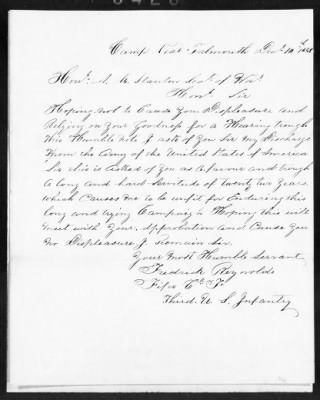 Camp near Falmouth Dec. 10th 1862
Hon. A. Stanton Sec. of War
Hon. Sir
Hoping not to Cause you Displeasure and
Relying on your Goodness for a Hearing trough
this Humble note I ask of you Sir my discharge
From the Army of the United States of America
Sir this is asked of you as a favour and trough
A long and hard Servitude of twenty two years
which Causes me to be unfit for Enduring this
long and trying Campaign Hoping this will
meet with your approbation and Cause you
no Displeasure I Remain Sir
Your Most Humble Servant
Fredrick Reynolds
Fifer Co. F.
Third U S. Infantry